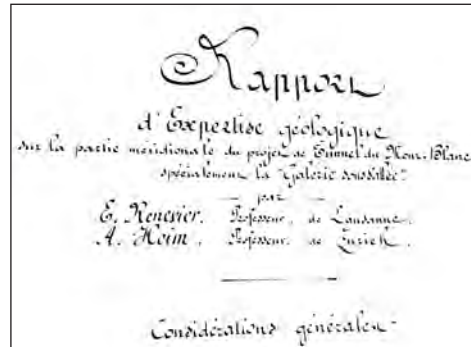 Rapport
d'Expertise géologique
sur la partie méridionale du projet de Tunnel du Mont-Blanc
spécialement la "Galerie
par
E. Renevier. Professeur, de Lausanne.
A. Heim. Professeur de Zurich.
Considérations générales